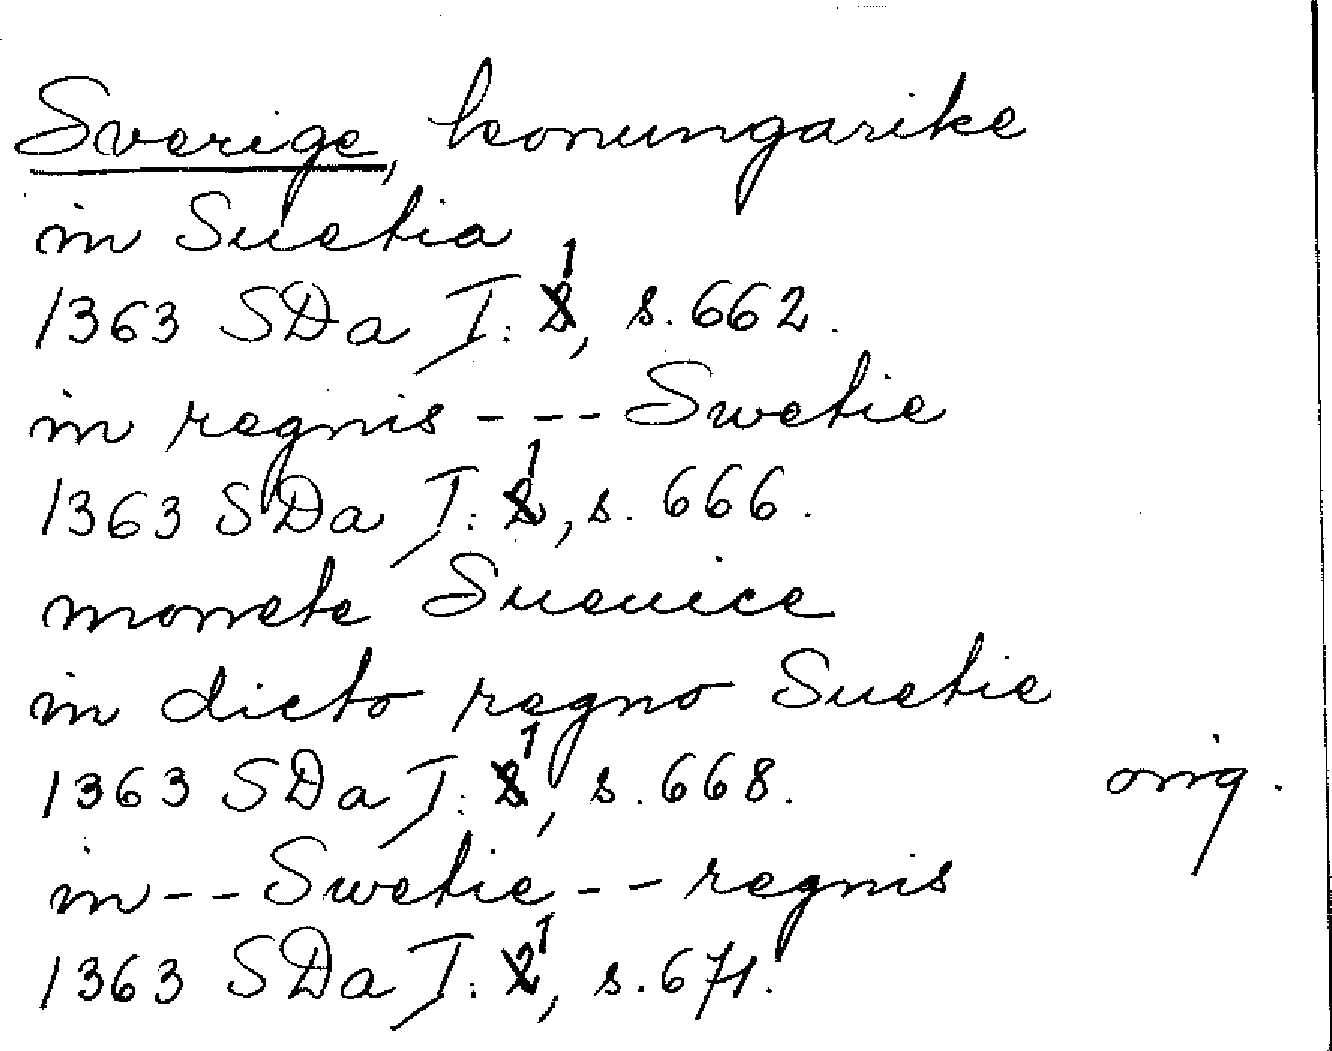 Sverige, konungarike
in Suetia
1363 SDa I:1, s. 662.
in regnis --- Swetie
1363 SDa I:1, s. 666.
monete Sueuice
in dicto regno Suetie
1363 SDa I:1, s. 668. orig.
in -- Swetie -- regnis
1363 SDa I:1, s. 671.